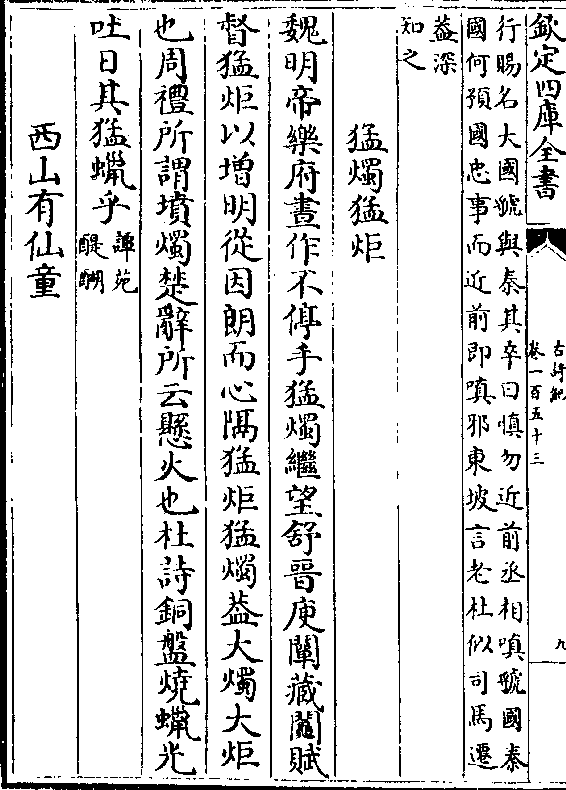 欽定四庫全書
古詩紀
卷一百五十三
九
行賜名大國虢與秦其卒曰慎勿近前丞相嗔虢國秦
國何預國忠事而近前即嗔邪東坡言老杜似司馬遷
蓋深
知之
猛燭猛炬
魏明帝樂府晝作不停手猛燭繼望舒晉庾闡藏鬮賦
督猛炬以增明從因朗而心隔猛炬猛燭蓋大燭大炬
也周禮所謂墳燭楚辭所云懸火也杜詩銅盤燒蠟光
吐日其猛蠟乎
譚苑
醍醐
西山有仙童